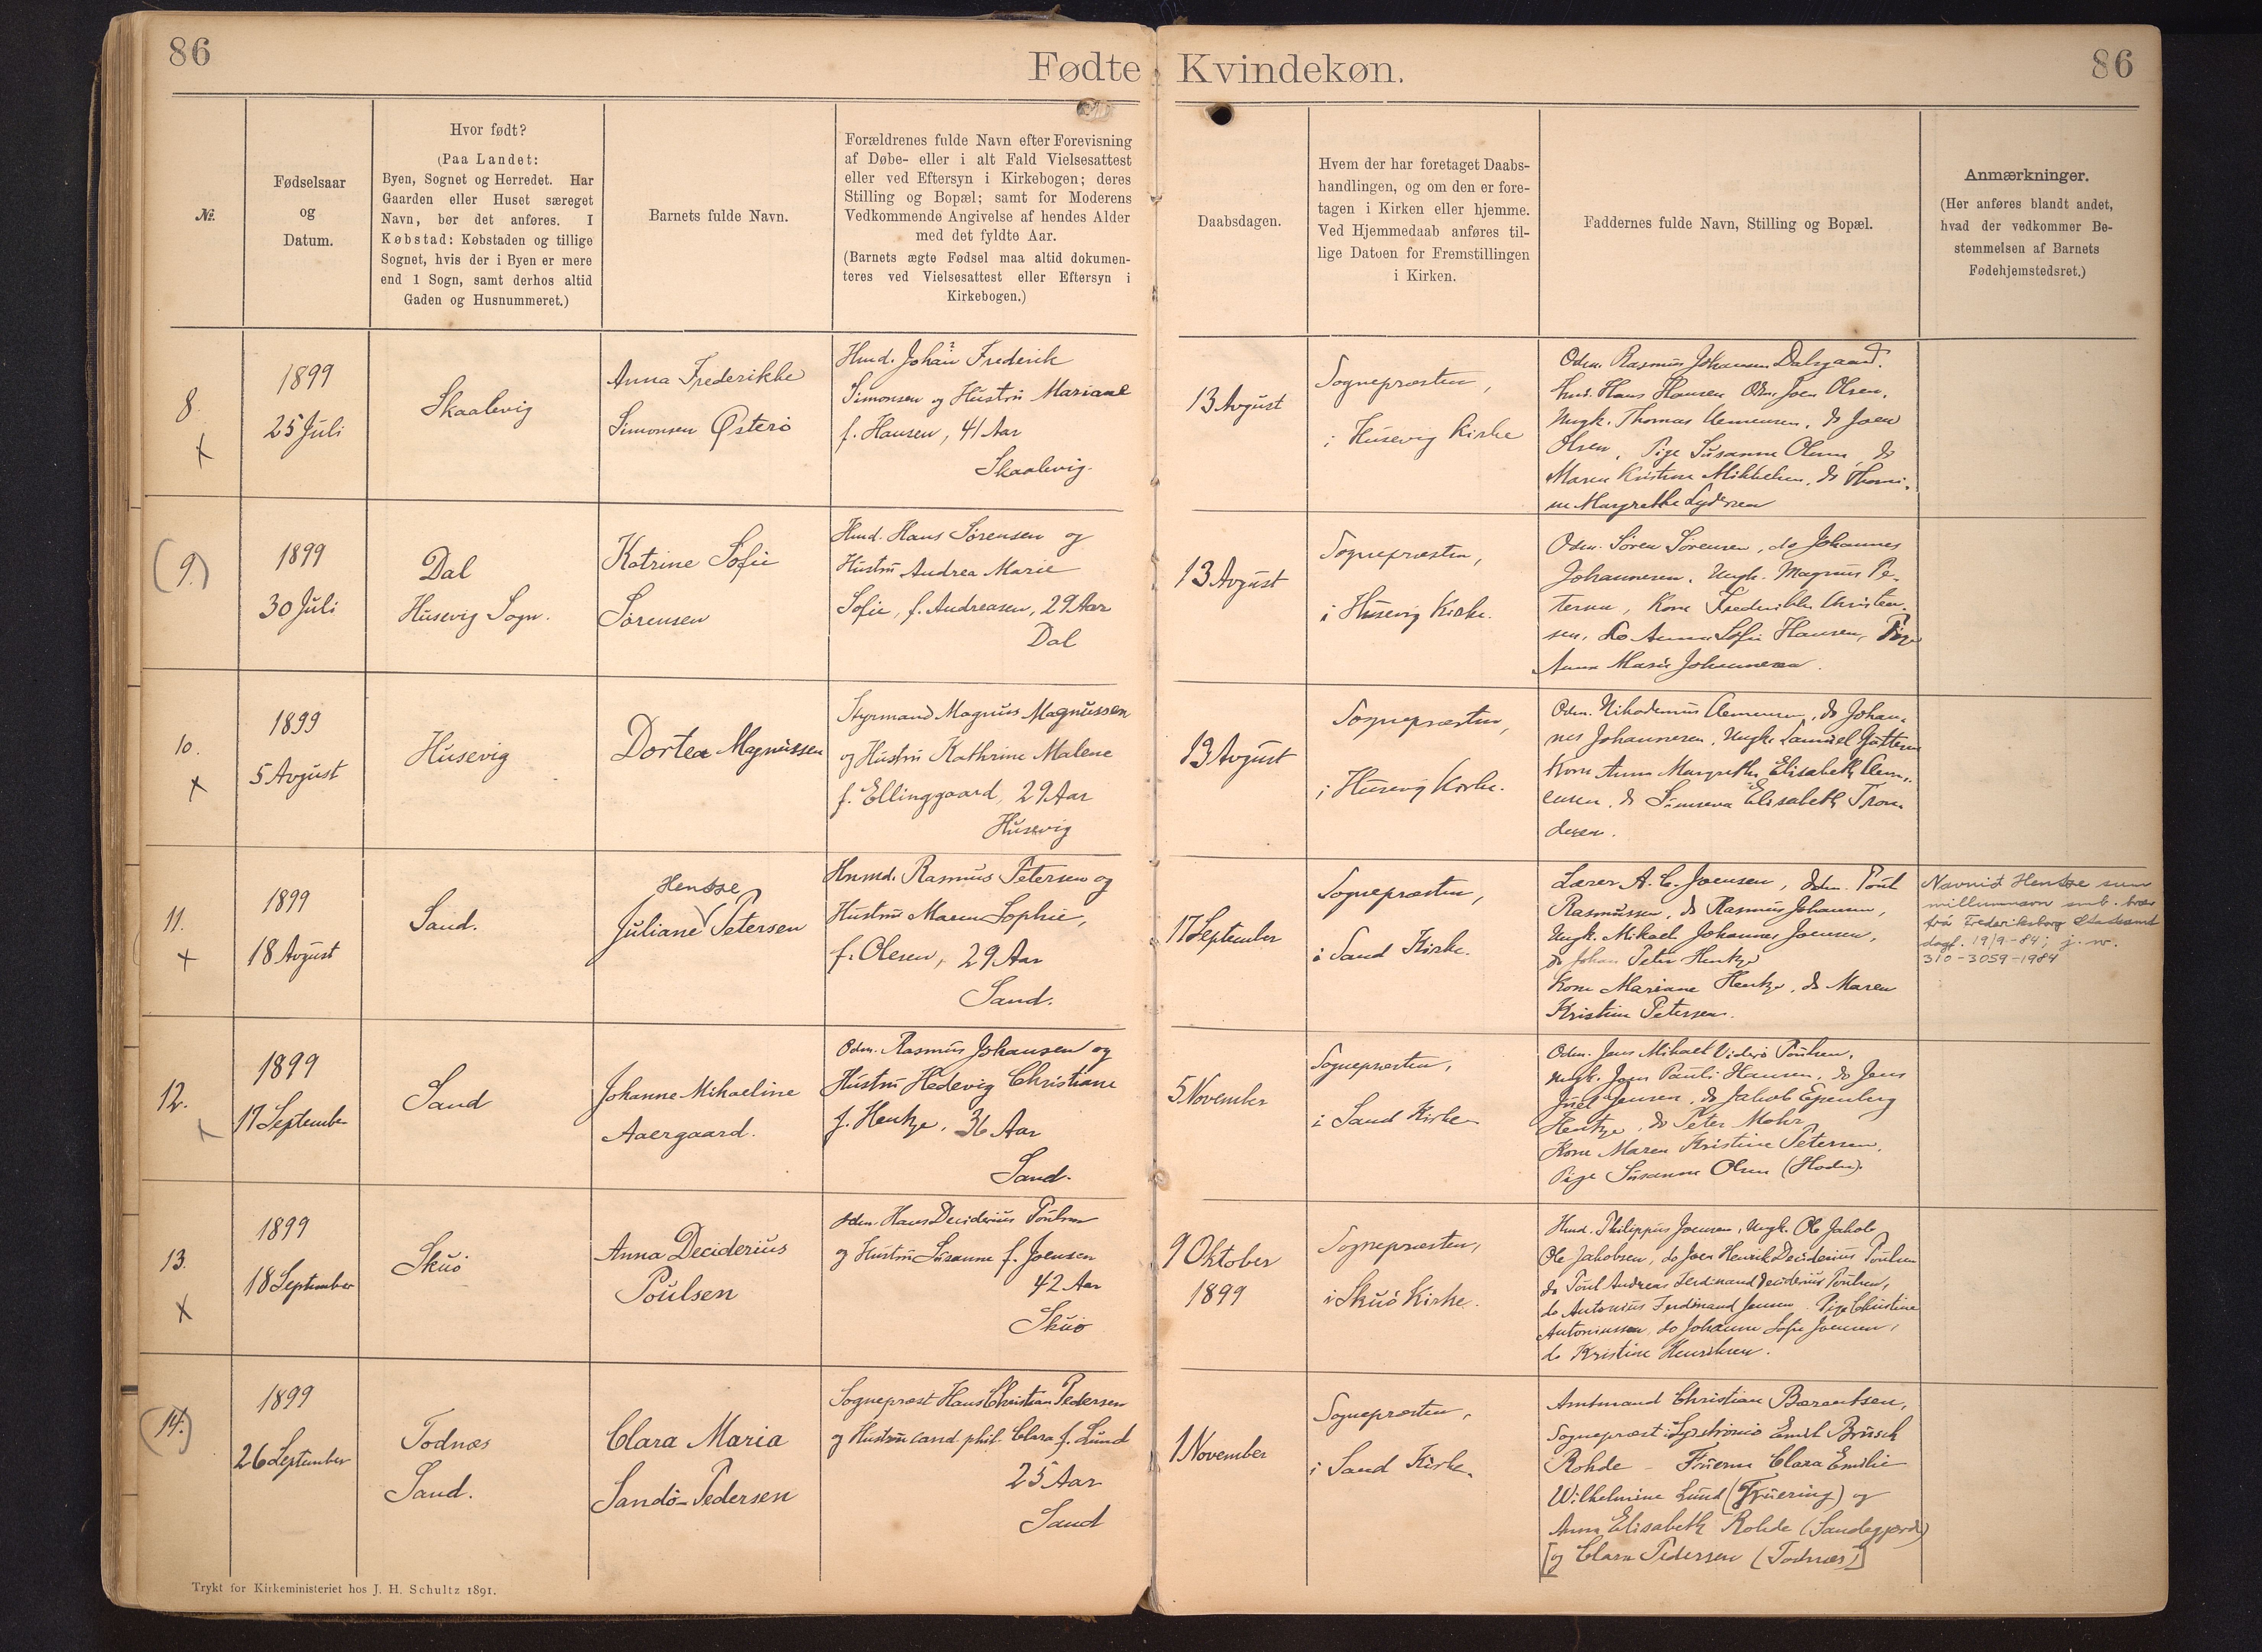 86
Fødte Kvindekøn.
86
№.
Fødselsaar
og
Datum.
Hvor født?
(Paa Landet:
Byen, Sognet og Herredet. Har
Gaarden eller Huset særeget
Navn, bør det anføres. I
Købstad: Købstaden og tillige
Sognet, hvis der i Byen er mere
end 1 Sogn, samt derhos altid
Gaden og Husnummeret.)
Barnets fulde Navn.
Forældrenes fulde Navn efter Forevisning
af Døbe- eller i alt Fald Vielsesattest
eller ved Eftersyn i Kirkebogen; deres
Stilling og Bopæl; samt for Moderens
Vedkommende Angivelse af hendes Alder
med det fyldte Aar.
(Barnets ægte Fødsel maa altid dokumen-
teres ved Vielsesattest eller Eftersyn i
Kirkebogen.)
Daabsdagen.
Hvem der har foretaget Daabs-
handlingen, og om den er fore-
tagen i Kirken eller hjemme.
Ved Hjemmedaab anføres til-
lige Datoen for Fremstillingen
i Kirken.
Faddernes fulde Navn, Stilling og Bopæl.
Anmærkninger.
(Her anføres blandt andet,
hvad der vedkommer Be-
stemmelsen af Barnets
Fødehjemstedsret.)
8.
x
1899
25 Juli
Skaalevig
Anna Frederikke
Simonsen Østerö
Hmd. Johan Frederik
Simonsen og Hustru Mariane
f. Hansen, 41 Aar
Skaalevig.
13 Avgust
Sognepræsten,
i Husevig Kirke
Odm. Rasmus Johansen Dalsgaard.
Hmd. Hans Hansen Odm. Joen Olsen.
Ungk. Thomas Clemensen, do Joen
Olsen, Pige Susanne Olsen, do
Maren Kristine Mikkelsen, do Thomi-
ne Margrethe Lydersen
(9.)
1899
30 Juli
Dal
Husevig Sogn.
Katrine Sofie
Sørensen
Hmd. Hans Sørensen og
Hustru Andrea Marie
Sofie, f. Andreasen, 29 Aar
Dal
13 Avgust
Sognepræsten,
i Husevig Kirke.
Odm. Søren Sørensen, do Johannes
Johannesen, Ungk. Magnus Pe-
tersen, Kone Frederikke Christen-
sen, do Anna Sofie Hansen, Pige
Anna Marie Johannesen.
10.
x
1899
5 Avgust
Husevig
Dortea Magnussen
Styrmand Magnus Magnussen
og Hustru Kathrine Malene
f. Ellinggaard, 29 Aar
Husevig
13 Avgust
Sognepræsten,
i Husevig Kirke.
Odm. Nikodemus Clemensen, do Johan-
nes Johannesen, Ungk. Samuel
Kone Anna Margrethe Elisabeth Clem-
ensen, do Elisabeth Tron-
desen.
11.
x
1899
18 Avgust
Sand.
Hentze
Juliane Petersen
Hmd. Rasmus Petersen og
Hustru Maren Sophie,
f. Olesen, 29 Aar
Sand.
17 September
Sognepræsten,
i Sand Kirke.
Lærer A. C. Joensen, Odm. Poul
Rasmussen, do Rasmus Johansen,
Ungk. Mikael Johannes Joensen,
do Johan Peter Hentze
Kone Mariane Hentze, do Maren
Kristine Petersen.
Navnið Hentze sum
millumnavn smb. bræv
frá Frederiksborg Statsamt
dagf. 19/9-84; j. nr.
310-3059-1984
12.
x
1899
17 September
Sand
Johanne Mikaeline
Aaergaard.
Odm. Rasmus Johansen og
Hustru Hedevig Christiane
f. Hentze, 36 Aar
Sand.
5 November
Sognepræsten,
i Sand Kirke
Odm. Jens Mikael Viderö Poulsen,
Ungk. Jens Pauli Hansen, do Jens
Juel Jensen, do Jakob Epenberg
Hentze, do Peter Mohr
Kone Maren Kristine Petersen,
Pige Susanne Olsen
13.
x
1899
18 September
Skuö
Anna Deciderius
Poulsen
Odm. Hans Deciderius Poulsen
og Hustru Susanne f. Joensen
42 Aar
Skuö
9 Oktober
1899
Sognepræsten,
i Skuö Kirke.
Hmd. Philippus Joensen, Ungk. Ole Jakob
Ole Jakobsen, do Joen Henrik Deciderius Poulsen
do Poul Andreas Ferdinand Deciderius Poulsen,
do Antonius Ferdinand Jensen Pige Christine
Antoniussen, do Johanne Sofie Joensen,
do Kristine Henriksen.
(14.)
1899
26 September
Todnæs
Sand.
Clara Maria
Sandö-Pedersen
Sognepræst Hans Christian Pedersen
og Hustru cand. phil. Clara f. Lund
25 Aar
Sand
1 November
Sognepræsten,
i Sand Kirke.
Amtmand Christian Bærentsen,
Sognepræst i Emil Brüsch
Rohde - Fruerne Clara Emilie
Wilhelmine Lund (Truering) og
Anna Elisabeth Rohde (Sandegjerde)
[og Clara Pedersen (Todnæs)]
Trykt for Kirkeministeriet hos J. H. Schultz 1891.